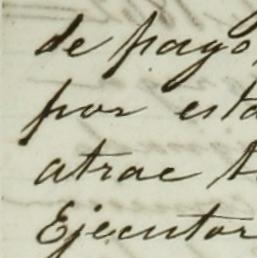 de pago,
por esta
atrae t
Ejecutor